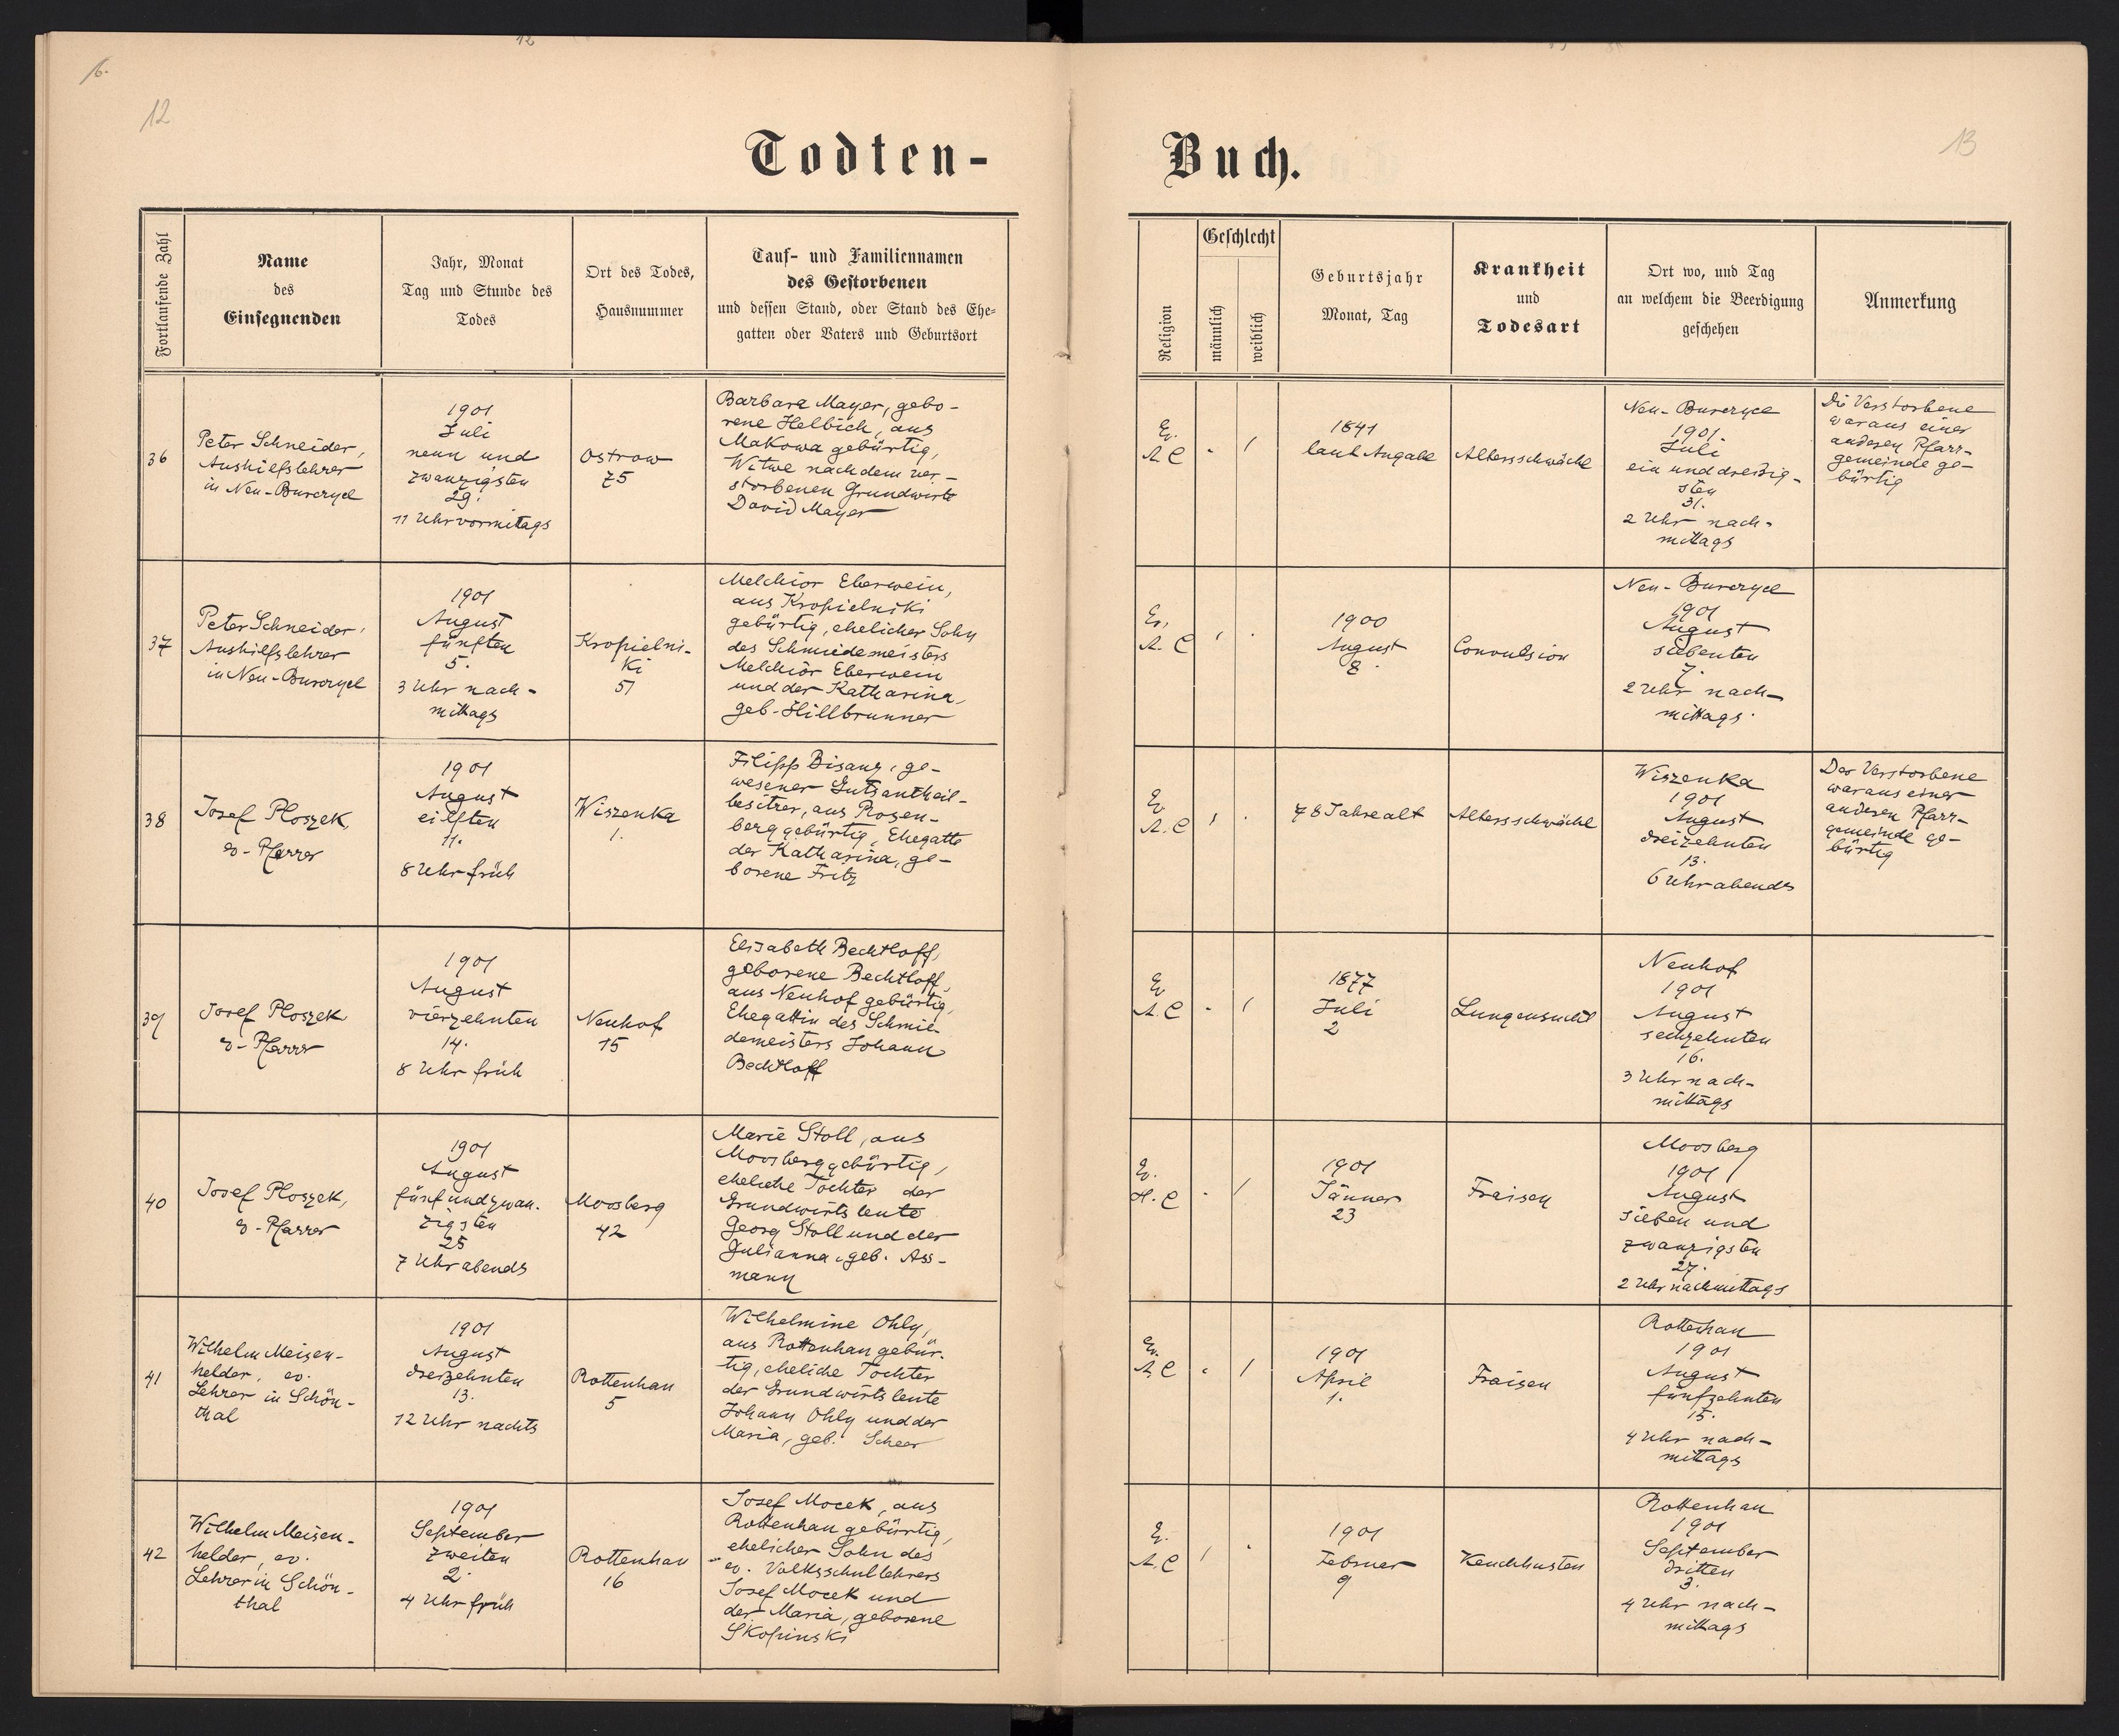 6.
12
12
13
Todten-
Buch.
Fortlaufende Zahl
Name
des
Einsegnenden
Jahr, Monat
Tag und Stunde des
Todes
Ort des Todes,
Hausnummer
Tauf- und Familiennamen
des Gestorbenen
und dessen Stand, oder Stand des Ehe-
gatten oder Vaters und Geburtsort
Religion
Geschlecht
männlich
weiblich
Geburtsjahr
Monat, Tag
Krankheit
und
Todesart
Ort wo, und Tag
an welchem die Beerdigung
geschehen
Anmerkung
36
Peter Schneider,
Aushilfslehrer
in Neu-Burczyce
1901
Juli
neun und
zwanzigsten
29.
11 Uhr vormitags
Ostrow
75
Barbara Mayer, gebo-
rene Helbich, aus
Makowa gebürtig,
Witwe nach dem ver-
storbenen Grundwirte
David Mayer
Ev.
A C
-
1
1841
laut Angabe
Altersschwäche
Neu-Burczyce
1901
Juli
ein und dreißig-
sten
31.
2 Uhr nach-
mittags
Die Verstorbene
war aus einer
anderen Pfarr-
gemeinde ge-
bürtig
37
Peter Schneider,
Aushilfslehrer
in Neu-Burczyce
1901
August
fünften
5.
3 Uhr nach-
mittags
Kropielni-
ki
51
Melchior Eberwein,
aus Kropielniki
gebürtig, ehelicher Sohn
des Schmiedemeisters
Melchior Eberwein
und der Katharina,
geb. Hillbrunner
Ev.
A. C
1
-
1900
August
8.
Convulsion
Neu-Burczyce
1901
August
siebenten
7.
2 Uhr nach-
mittags.
38
Josef Ploszek,
ev-Pfarrer
1901
August
eilften
11.
8 Uhr früh
Wiszenka
1.
Filipp Bisanz, ge-
wesener Gutsantheil-
besitzer, aus Rosen-
berg gebürtig, Ehegatte
der Katharina, ge-
borene Fritz
Ev
A.C
1
-
78 Jahre alt
Altersschwäche
Wiszenka
1901
August
dreizehnten
13.
6 Uhr abends
Der Verstorbene
war aus einer
anderen Pfarr-
gemeinde ge-
bürtig
39
Josef Ploszek
ev-Pfarrer
1901
August
vierzehnten
14.
8 Uhr früh
Neuhof
15
Elisabeth Bechtloff,
geborene Bechtloff,
aus Neuhof gebürtig,
Ehegattin des Schmie-
demeisters Johann
Bechtloff
Ev
A.C
-
1
1877
Juli
2
Lungensucht
Neuhof
1901
August
sechzehnten
16.
3 Uhr nach-
mittags
40
Josef Ploszek,
ev-Pfarrer
1901
August
fünfundzwan-
zigsten
25
7 Uhr abends
Moosberg
42
Marie Stoll, aus
Moosberg gebürtig,
eheliche Tochter der
Grundwirtsleute
Georg Stoll und der
Julianna, geb. Ass-
mann
Ev.
H.C
-
1
1901
Jänner
23
Fraisen
Moosberg
1901
August
sieben und
zwanzigsten
27.
2 Uhr nachmittags
41
Wilhelm Meisen-
helder, ev.
Lehrer in Schön-
thal
1901
August
dreizehnten
13.
12 Uhr nachts
Rottenhan
5
Wilhelmine Ohly,
aus Rottenhan gebür-
tig, eheliche Tochter
der Grundwirtsleute
Johann Ohly und der
Maria, geb. Scheer
Ev.
A C
-
1
1901
April
1.
Fraisen
Rottenhan
1901
August
fünfzehnten
15.
4 Uhr nach-
mittags
42
Wilhelm Meisen-
helder, ev.
Lehrer in Schön-
thal
1901
September
zweiten
2.
4 Uhr früh
Rottenhan
16
Josef Mocek, aus
Rottenhan gebürtig,
ehelicher Sohn des
ev. Volksschullehrers
Josef Mocek und
der Maria, geborene
Skopinski
E.
A.C
1
-
1901
Februer
9
Keuchhusten
Rottenhan
1901
September
dritten
3.
4 Uhr nach-
mittags